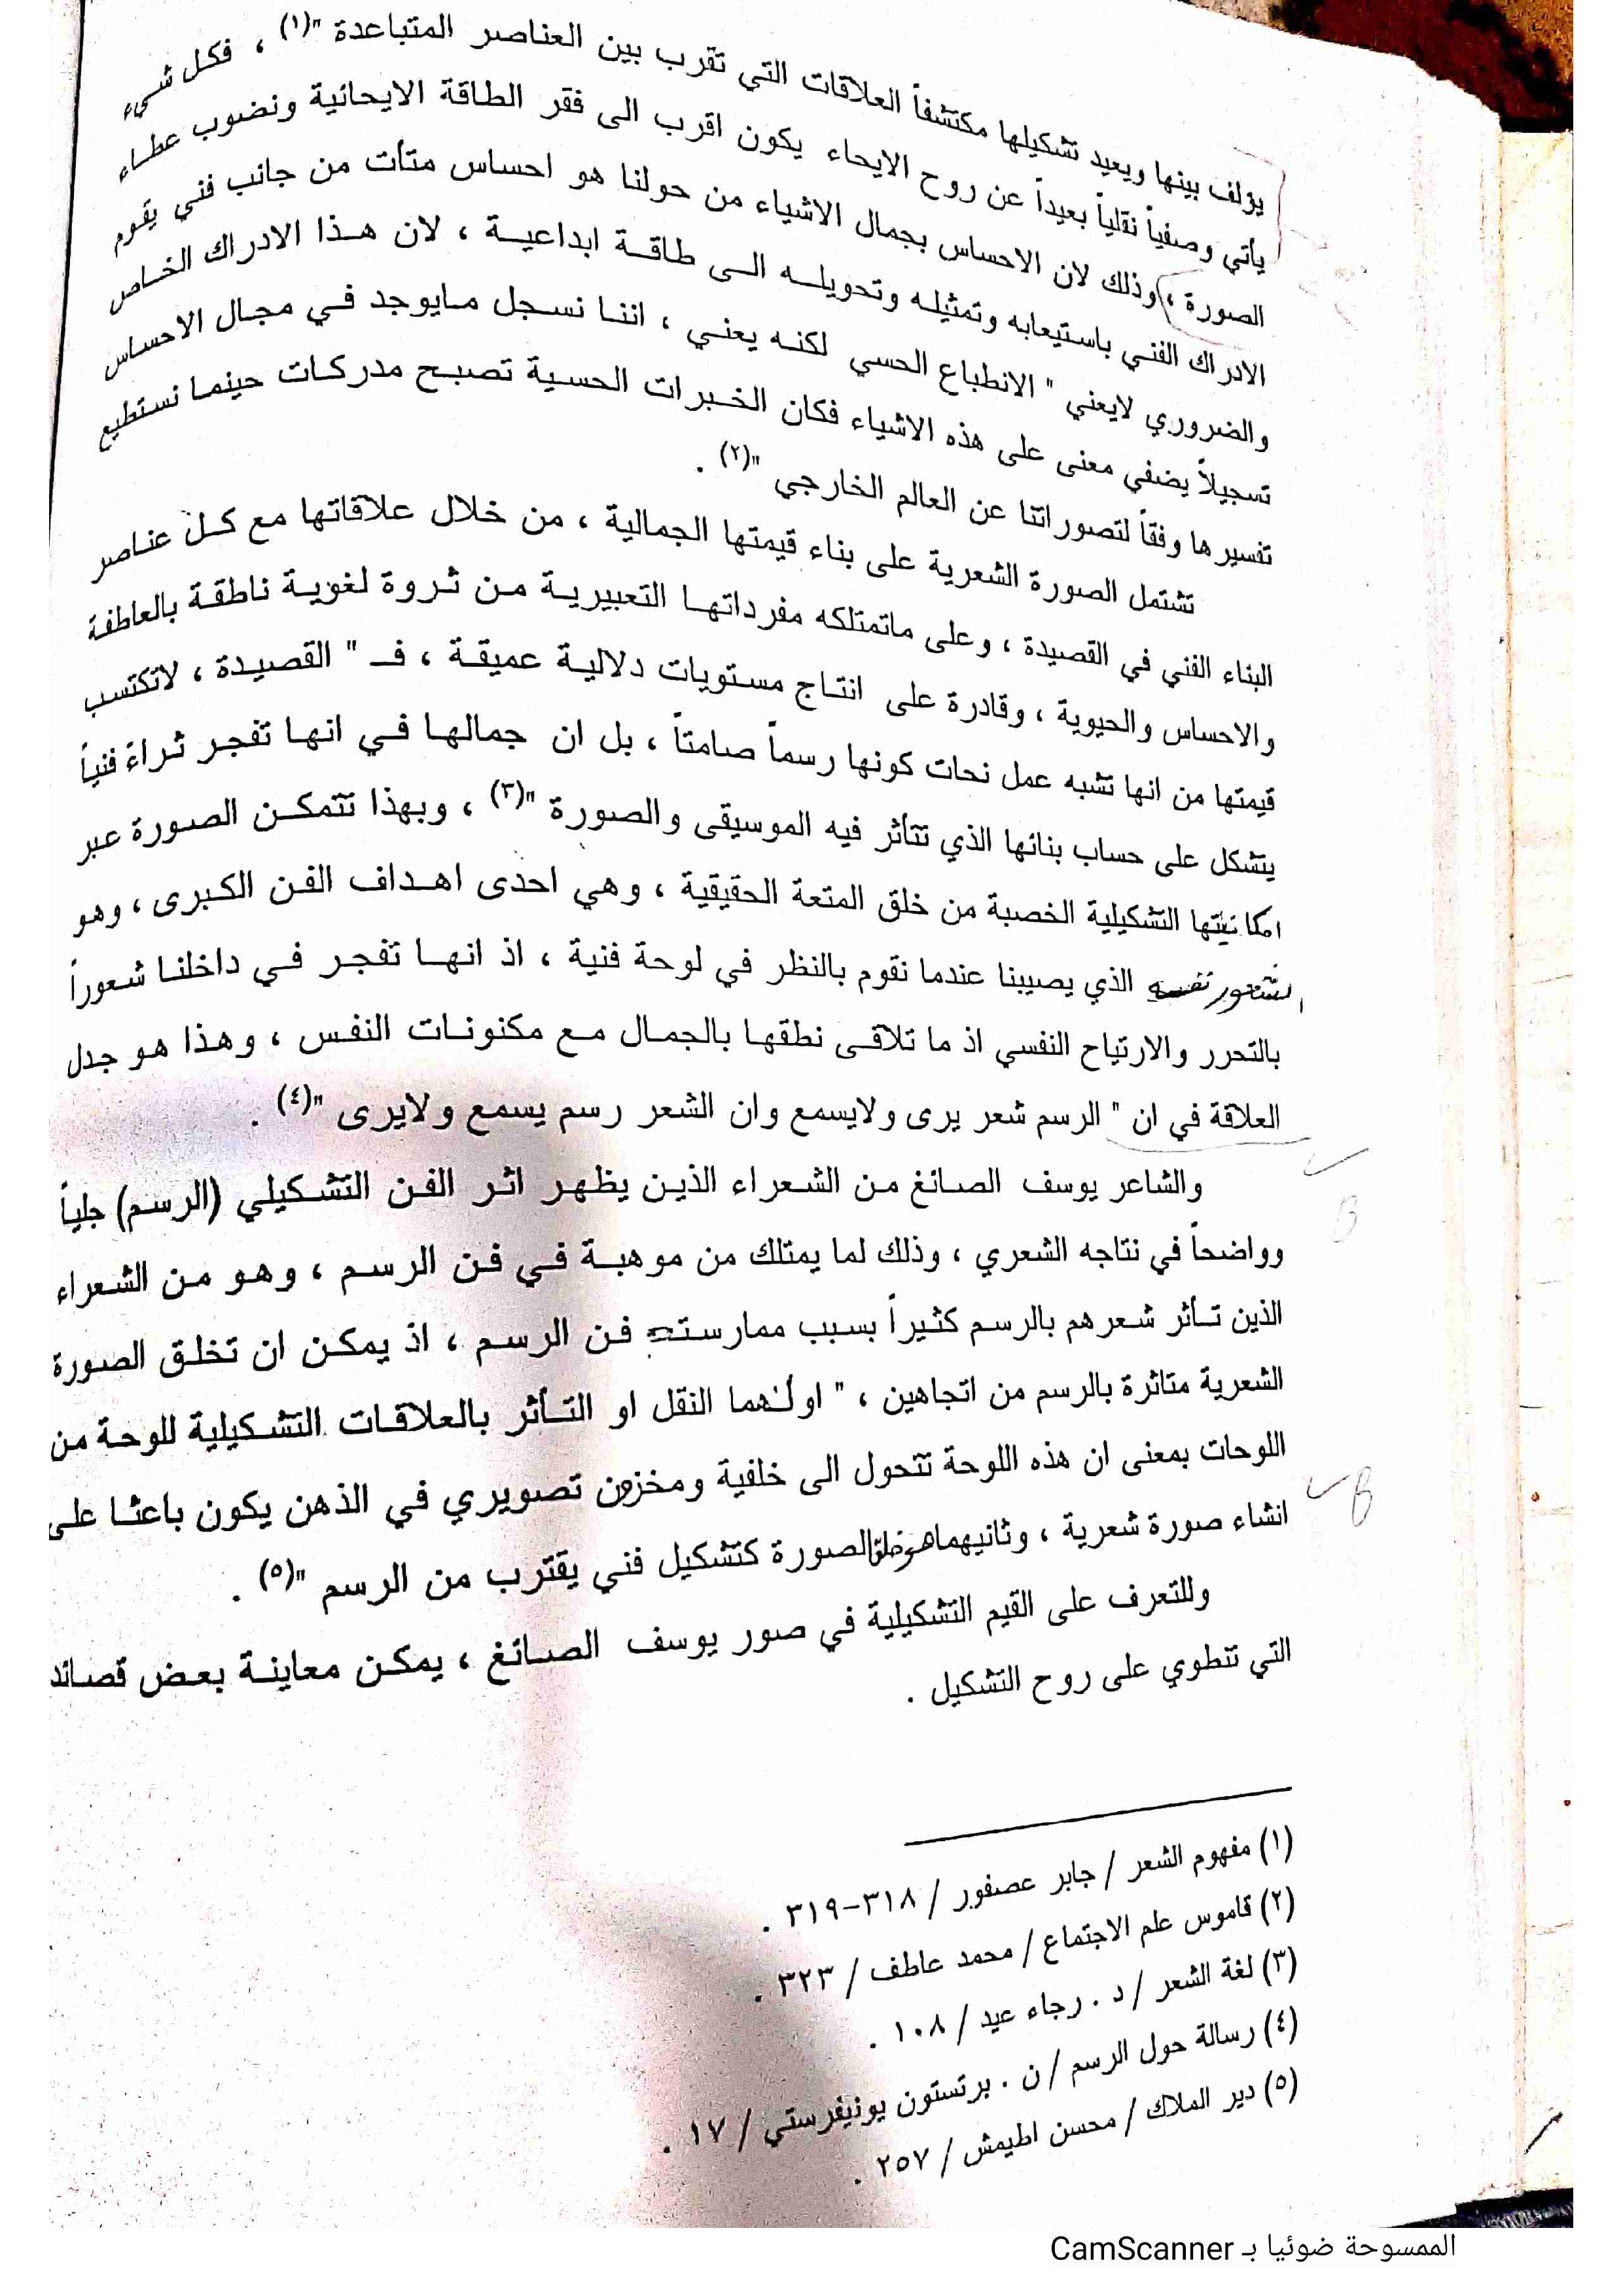 يؤلف بينها ويعيد تشكيلها مكتشفاً العلاقات التي تقرب بين العناصر المتباعدة "(١) ، فكل شيء
يأتي وصفياً نقلياً بعيداً عن روح الايحاء يكون اقرب الى فقر الطاقة الايحائية ونضوب عطاء
الصورة ، وذلك لان الاحساس بجمال الاشياء من حولنا هو احساس متأت من جانب فني يقوم
الادراك الفني باستيعابه وتمثيله وتحويله الى طاقة ابداعية ، لان هذا الادراك الخاص
والضروري لايعني " الانطباع الحسي لكنه يعني ، اننا نسجل مايوجد في مجال الاحساس
تسجيلاً يضفي معنى على هذه الاشياء فكان الخبرات الحسية تصبح مدركات حينما نستطيع
تفسيرها وفقاً لتصوراتنا عن العالم الخارجي "(٢) .
تشتمل الصورة الشعرية على بناء قيمتها الجمالية ، من خلال علاقاتها مع كل عناصر
البناء الفني في القصيدة ، وعلى ماتمتلكه مفرداتها التعبيرية من ثروة لغوية ناطقة بالعاطفة
والاحساس والحيوية ، وقادرة على انتاج مستويات دلالية عميقة ، فـ " القصيدة ، لاتكتسب
قيمتها من انها تشبه عمل نحات كونها رسماً صامتاً ، بل ان جمالها في انها تفجر ثراءً فنياً
يتشكل على حساب بنائها الذي تتأثر فيه الموسيقى والصورة "(٣) ، وبهذا تتمكن الصورة عبر
امكانيتها التشكيلية الخصبة من خلق المتعة الحقيقية ، وهي احدى اهداف الفن الكبرى ، وهو
الشعور نفسه الذي يصيبنا عندما نقوم بالنظر في لوحة فنية ، اذ انها تفجر في داخلنا شعوراً
بالتحرر والارتياح النفسي اذ ما تلاقى نطقها بالجمال مع مكنونات النفس ، وهذا هو جدل
العلاقة في ان " الرسم شعر يرى ولايسمع وان الشعر رسم يسمع ولايرى "(٤) .
والشاعر يوسف الصائغ من الشعراء الذين يظهر اثر الفن التشكيلي (الرسم) جلياً
وواضحاً في نتاجه الشعري ، وذلك لما يمتلك من موهبة في فن الرسم ، وهو من الشعراء
الذين تأثر شعرهم بالرسم كثيراً بسبب ممارسته فن الرسم ، اذ يمكن ان تخلق الصورة
الشعرية متاثرة بالرسم من اتجاهين ، " اولهما النقل او التأثر بالعلاقات التشكيلية للوحة من
اللوحات بمعنى ان هذه اللوحة تتحول الى خلفية ومخزون تصويري في الذهن يكون باعثا على
انشاء صورة شعرية ، وثانيهما هو خلق الصورة كتشكيل فني يقترب من الرسم "(٥) .
وللتعرف على القيم التشكيلية في صور يوسف الصائغ ، يمكن معاينة بعض قصائد
التي تنطوي على روح التشكيل .
(١) مفهوم الشعر / جابر عصفور / ٣١٨-٣١٩ .
(٢) قاموس علم الاجتماع / محمد عاطف / ٣٢٣ .
(٣) لغة الشعر / د . رجاء عيد / ١٠٨ .
(٤) رسالة حول الرسم / ن . برتستون يونيفرستي / ١٧ .
(٥) دير الملاك / محسن اطيمش / ٢٥٧ .
الممسوحة ضوئيا بـ CamScanner